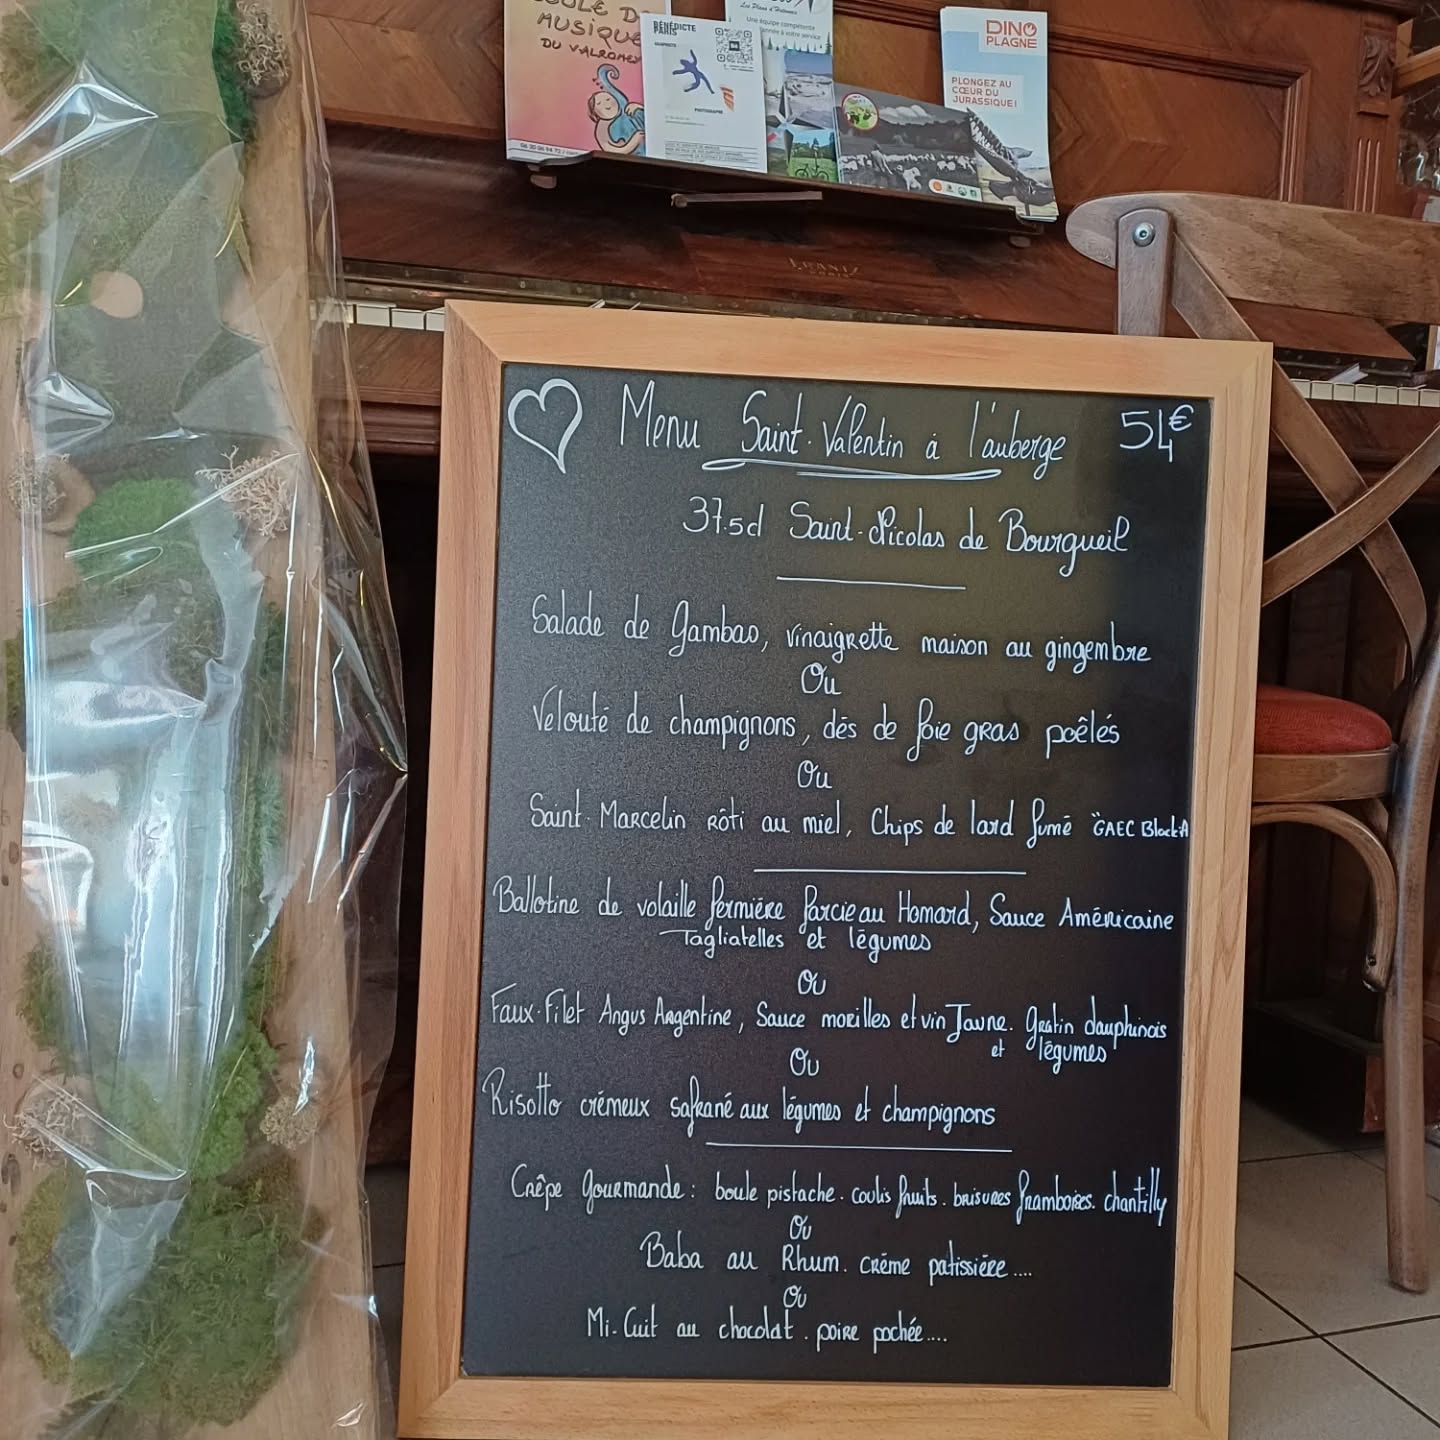 ÉCOLE DE
MUSIQUE
DU VALROMEY
06 20 06 94 72
BÉNÉDICTE
PARIS
PHOTOGRAPHE
Les Plans d'Hotonnes
Une équipe compétente
à votre service
DINO
PLAGNE
PLONGEZ AU
CŒUR DU
JURASSIQUE !
Menu Saint-Valentin à l'auberge 54€
37.5cl Saint-Nicolas de Bourgueil
Salade de Gambas, vinaigrette maison au gingembre
Ou
Velouté de champignons, dés de foie gras poêlés
Ou
Saint-Marcelin rôti au miel, Chips de lard fumé "GAEC Block'A
Ballotine de volaille fermière farcie au Homard, Sauce Américaine
Tagliatelles et légumes
Ou
Faux-Filet Angus Argentine, Sauce morilles et vin Jaune. Gratin dauphinois
et légumes
Ou
Risotto crémeux safrané aux légumes et champignons
Crêpe Gourmande : boule pistache. coulis fruits. brisures framboises. chantilly
Ou
Baba au Rhum. crème patissière....
Ou
Mi-Cuit au chocolat. poire pochée....